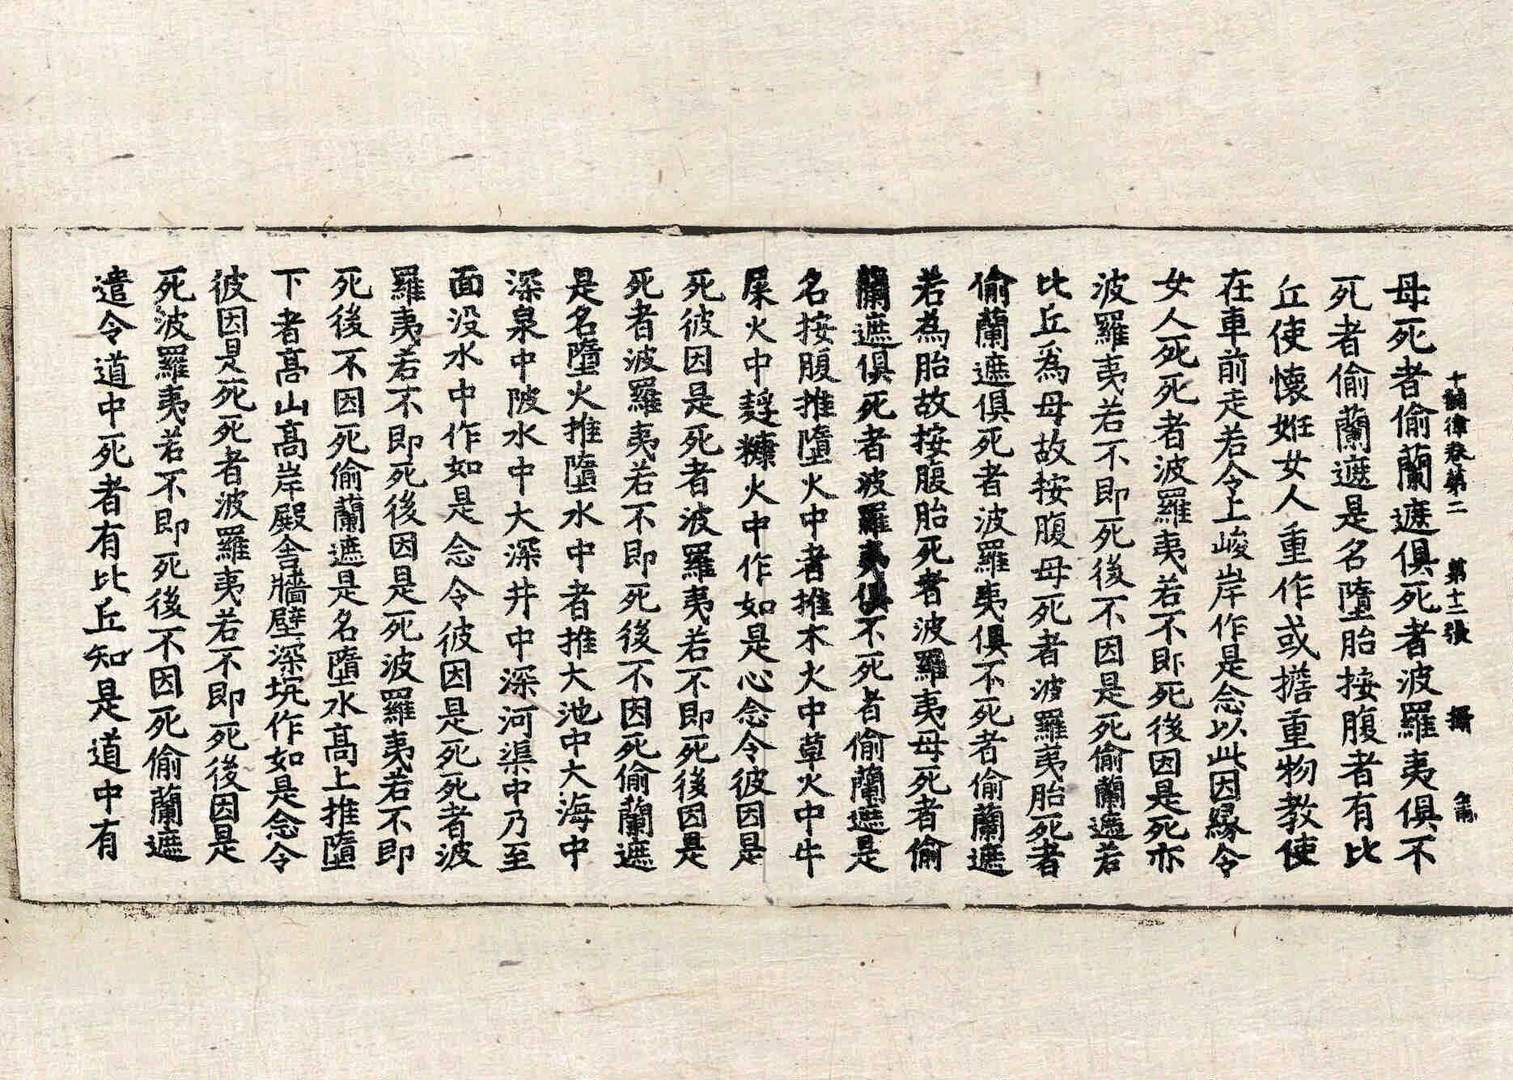 十誦律卷第二 第十二張
母死者偷蘭遮俱死者波羅夷俱不
死者偷蘭遮是名墮胎按腹者有比
丘使懷妊女人重作或擔重物教使
在車前走若令上峻岸作是念以此因緣令
女人死死者波羅夷若不即死後因是死亦
波羅夷若不即死後不因是死偷蘭遮若
比丘為母故按腹母死者波羅夷胎死者
偷蘭遮俱死者波羅夷俱不死者偷蘭遮
若為胎故按腹胎死者波羅夷母死者偷
蘭遮俱死者波羅夷俱不死者偷蘭遮是
名按腹推墮火中者推木火中草火中牛
屎火中麩糠火中作如是心念令彼因是
死彼因是死者波羅夷若不即死後因是
死者波羅夷若不即死後不因死偷蘭遮
是名墮火推墮水中者推大池中大海中
深泉中陂水中大深井中深河渠中乃至
面没水中作如是念令彼因是死死者波
羅夷若不即死後因是死波羅夷若不即
死後不因死偷蘭遮是名墮水高上推墮
下者高山高岸殿舍牆壁深坑作如是念令
彼因是死死者波羅夷若不即死後因是
死波羅夷若不即死後不因死偷蘭遮
遣令道中死者有比丘知是道中有